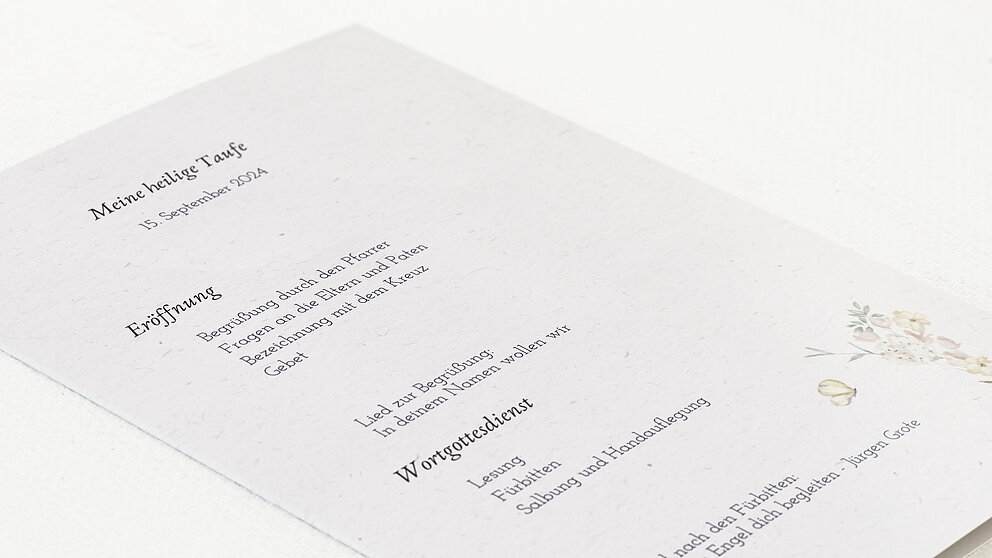 Meine heilige Taufe
15. September 2024
Eröffnung
Begrüßung durch den Pfarrer
Fragen an die Eltern und Paten
Bezeichnung mit dem Kreuz
Gebet
Lied zur Begrüßung:
In deinem Namen wollen wir
Wortgottesdienst
Lesung
Fürbitten
Salbung und Handauflegung
nach den Fürbitten:
Engel dich begleiten - Jürgen Grote